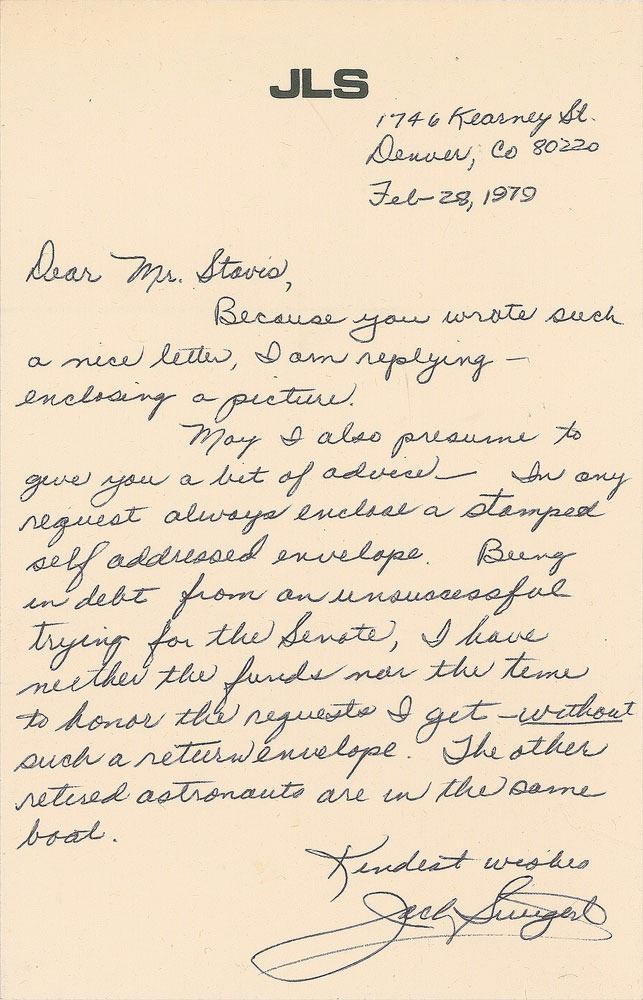 JLS
1746 Kearney St.
Denver, Co 80220
Feb-28, 1979
Dear Mr. Stavis,
Because you wrote such
a nice letter, I am replying -
enclosing a picture.
May I also presume to
give you a bit of advice - In any
request always enclose a stamped
self addressed envelope. Being
in debt from an unsuccessful
trying for the Senate, I have
neither the funds nor the time
to honor the requests I get - without
such a return envelope. The other
retired astronauts are in the same
boat.
Kindest wishes
Jack Swigert